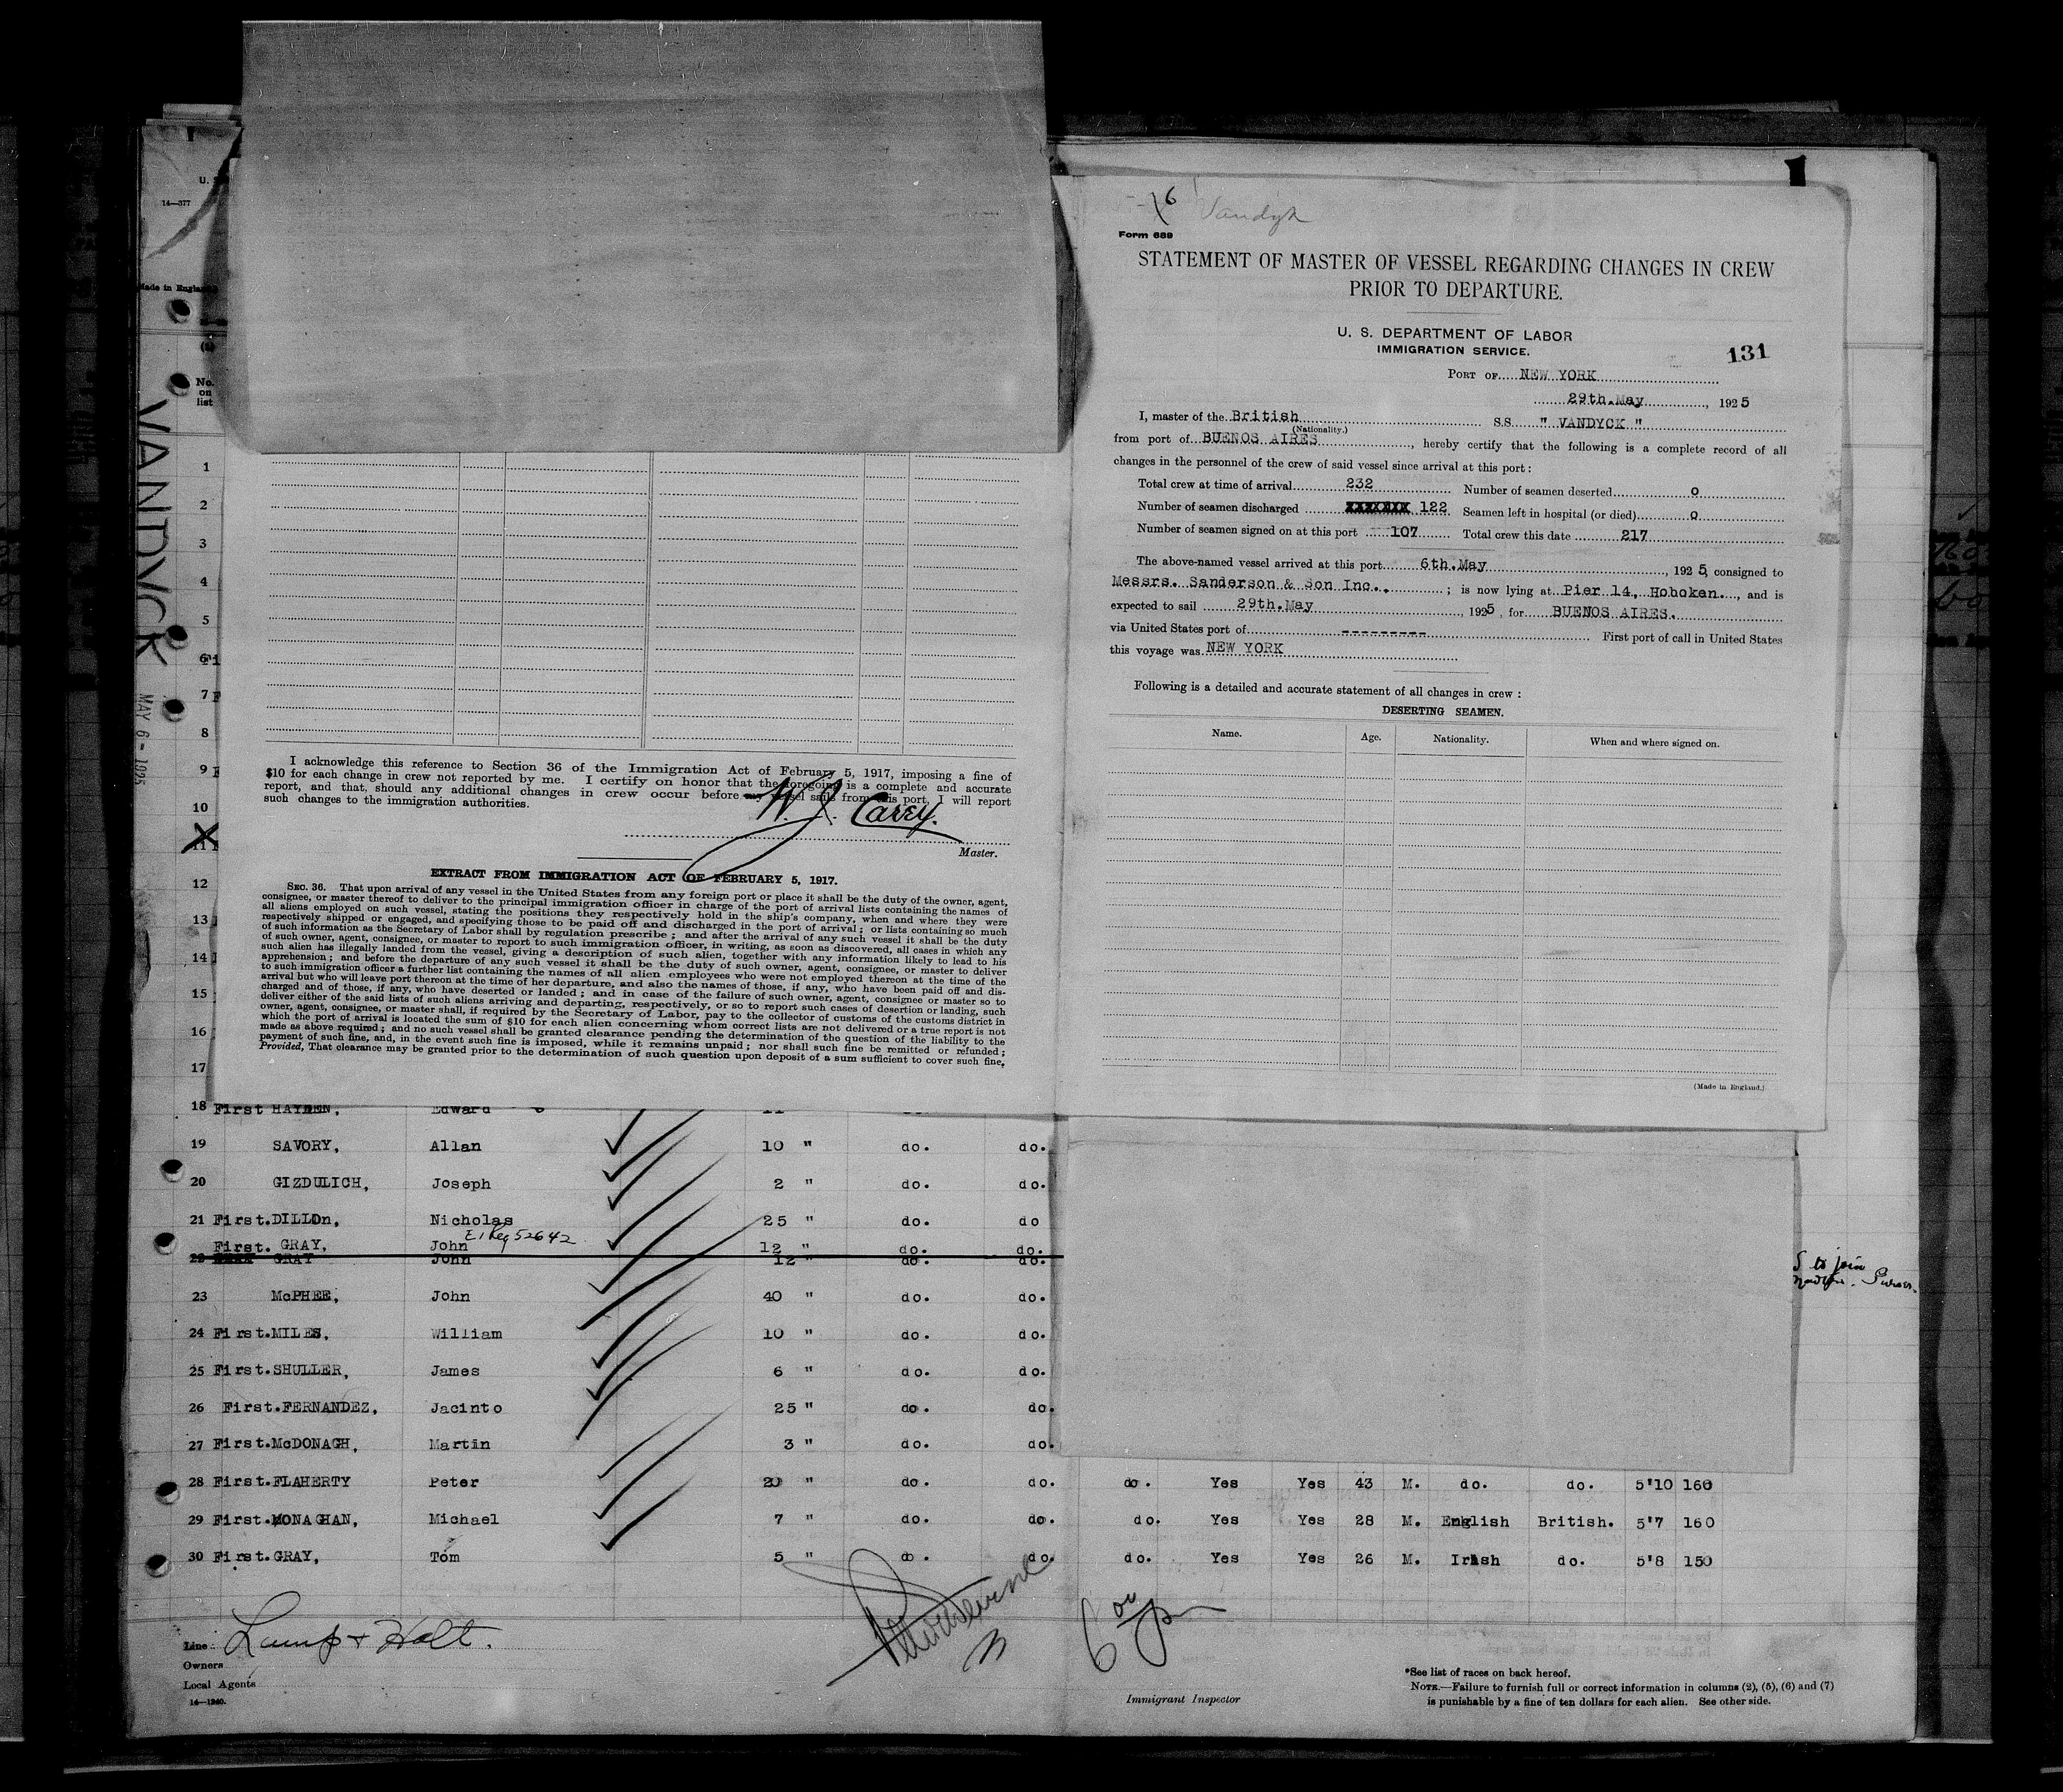 U. S
14—377
Made in England
(1)
No.
on
list
VANDYCK
MAY 6 - 1925
1
2
3
4
5
6 Fi
7 F
8
9 F
10
11
12
13
14
15
16
17
I acknowledge this reference to Section 36 of the Immigration Act of February 5, 1917, imposing a fine of
$10 for each change in crew not reported by me. I certify on honor that the foregoing is a complete and accurate
report, and that, should any additional changes in crew occur before my vessel sails from this port, I will report
such changes to the immigration authorities.
W. J. Carey.
Master.
EXTRACT FROM IMMIGRATION ACT OF FEBRUARY 5, 1917.
SEC. 36. That upon arrival of any vessel in the United States from any foreign port or place it shall be the duty of the owner, agent,
consignee, or master thereof to deliver to the principal immigration officer in charge of the port of arrival lists containing the names of
all aliens employed on such vessel, stating the positions they respectively hold in the ship's company, when and where they were
respectively shipped or engaged, and specifying those to be paid off and discharged in the port of arrival; or lists containing so much
of such information as the Secretary of Labor shall by regulation prescribe; and after the arrival of any such vessel it shall be the duty
of such owner, agent, consignee, or master to report to such immigration officer, in writing, as soon as discovered, all cases in which any
such alien has illegally landed from the vessel, giving a description of such alien, together with any information likely to lead to his
apprehension; and before the departure of any such vessel it shall be the duty of such owner, agent, consignee, or master to deliver
to such immigration officer a further list containing the names of all alien employees who were not employed thereon at the time of the
arrival but who will leave port thereon at the time of her departure, and also the names of those, if any, who have been paid off and dis-
charged and of those, if any, who have deserted or landed; and in case of the failure of such owner, agent, consignee or master so to
deliver either of the said lists of such aliens arriving and departing, respectively, or so to report such cases of desertion or landing, such
owner, agent, consignee, or master shall, if required by the Secretary of Labor, pay to the collector of customs of the customs district in
which the port of arrival is located the sum of $10 for each alien concerning whom correct lists are not delivered or a true report is not
made as above required; and no such vessel shall be granted clearance pending the determination of the question of the liability to the
payment of such fine, and, in the event such fine is imposed, while it remains unpaid; nor shall such fine be remitted or refunded;
Provided, That clearance may be granted prior to the determination of such question upon deposit of a sum sufficient to cover such fine,
6 Vandyk
Form 689
STATEMENT OF MASTER OF VESSEL REGARDING CHANGES IN CREW
PRIOR TO DEPARTURE.
U. S. DEPARTMENT OF LABOR
IMMIGRATION SERVICE.
131
PORT OF NEW YORK
29th.May, 1925
I, master of the British SS. " VANDYCK "
(Nationality.)
from port of BUENOS AIRES, hereby certify that the following is a complete record of all
changes in the personnel of the crew of said vessel since arrival at this port:
Total crew at time of arrival 232 Number of seamen deserted o
Number of seamen discharged XXXXXXX 122 Seamen left in hospital (or died) o
Number of seamen signed on at this port 107 Total crew this date 217
The above-named vessel arrived at this port 6th.May, 1925, consigned to
Messrs. Sanderson & Son Inc.; is now lying at Pier 14, Hoboken., and is
expected to sail 29th.May, 1925, for BUENOS AIRES.
via United States port of --------- First port of call in United States
this voyage was NEW YORK
Following is a detailed and accurate statement of all changes in crew:
DESERTING SEAMEN.
Name. Age. Nationality. When and where signed on.
(Made in England.)
18 First HAYDEN, Edward 11
19 SAVORY, Allan 10 " do. do.
20 GIZDULICH, Joseph 2 " do. do.
21 First.DILLOn, Nicholas 25 " do. do
E.I Reg 52642
First. GRAY, John 12 " do. do.
22 GRAY John 12 " do. do.
S to join
23 McPHEE, John 40 " do. do.
24 First.MILES, William 10 " do. do.
25 First.SHULLER, James 6 " do. do.
26 First.FERNANDEZ, Jacinto 25 " do. do.
27 First.McDONAGH, Martin 3 " do. do.
28 First.FLAHERTY Peter 20 " do. do. do. Yes Yes 43 M. do. do. 5'10 160
29 First.MONAGHAN, Michael 7 " do. do. do. Yes Yes 28 M. English British. 5'7 160
30 First.GRAY, Tom 5 " do. do. do. Yes Yes 26 M. Irish do. 5'8 150
Line Lamp + Holt.
Owners
Local Agents
14—1240.
Immigrant Inspector
*See list of races on back hereof.
NOTE.—Failure to furnish full or correct information in columns (2), (5), (6) and (7)
is punishable by a fine of ten dollars for each alien. See other side.